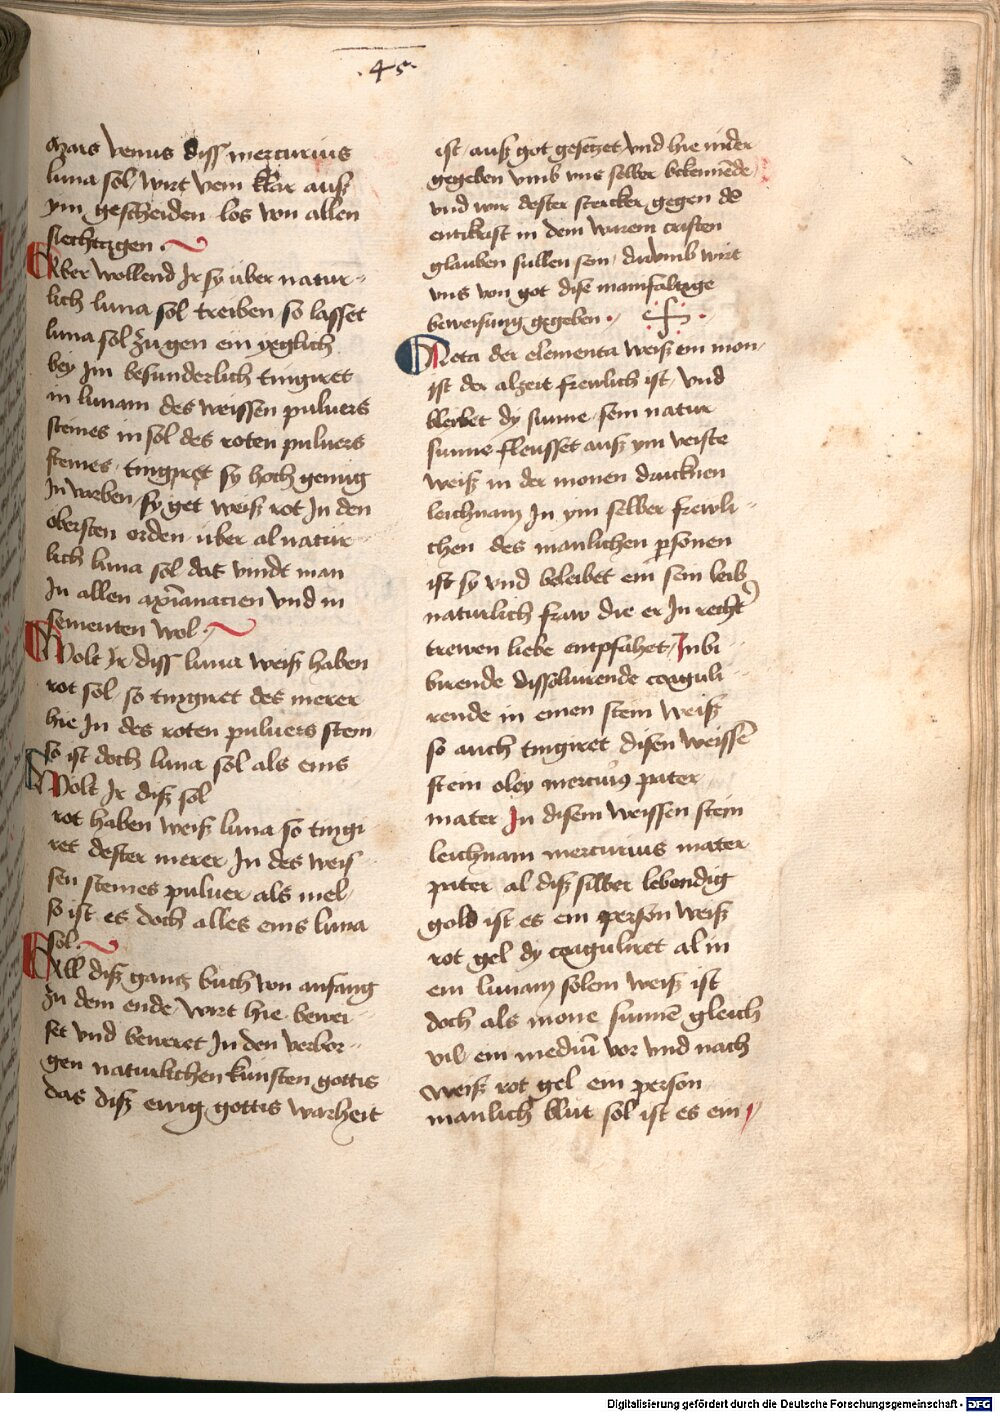 .45.
Mars venus diss mercurius
luna sol / wirt vein klar auß
ym gescheiden los von allen
siechtzgen
Aber wollend Ir sy über natur-
lich luna sol treiben so lasset
luna sol zu gen ein yeglich
bey Im besunderlich tingiret
in lunam des weissen puluers
steines in sol des roten puluers
steines · tingiret sy hoch genug
In varben / sy get weiß rot In den
obersten orden über al natür
lich luna sol das vindt man
In allen und in
sementen wol
Wolt Ir diss luna weiß haben
rot sol so tingiret des merer
hie In des roten puluers stein
so ist doch luna sol als eins
Wolt Ir diß sol
rot haben weiß luna so tingi
ret dester merer In des weis
sen steines puluer als mel
so ist es doch alles eins luna
sol
All diß gantz buch von anfang
zu dem ende wirt hie bewei
set und beweret In den verbor-
gen naturlichen kunsten gottis
das diß ewig gottis warheit
ist / auß got gesetzet vnd hie nider
gegeben vmb vns selber bekennēde
vnd wir dester stercker gegen dē
entikrist in dem warem cristen
glauben sullen sein / darvmb wirt
vns von got dise manifaltige
beweisung gegeben ·
Nota der elementa weiß ein mon
ist der alzeit frewlich ist / vnd
bleibet dy sunne / sein natur
sunne fleusset auß ym veiste
weiß in der monen drucknen
leichnam In ym selber frewli
chen des manlichen personen
ist sy vnd beleibet ein sein leib
naturlich fraw die er In recht
trewen liebe empfahet / Inbi
birende dissoluirende coaguli
rende in einen stein weiß
so auch tingiret disen weissē
stein oley mercurius pater
mater In disem weissen stein
leichnam mercurius mater
pater al diß silber lebendig
gold ist es ein person weiß
rot gel dy coaguliret al in
ein lunam solem weiß ist
doch als mone sunnē gleich
vil ein mediū vor vnd nach
weiß rot gel ein person
manlich blut sol ist es ein
Digitalisierung gefördert durch die Deutsche Forschungsgemeinschaft - DFG